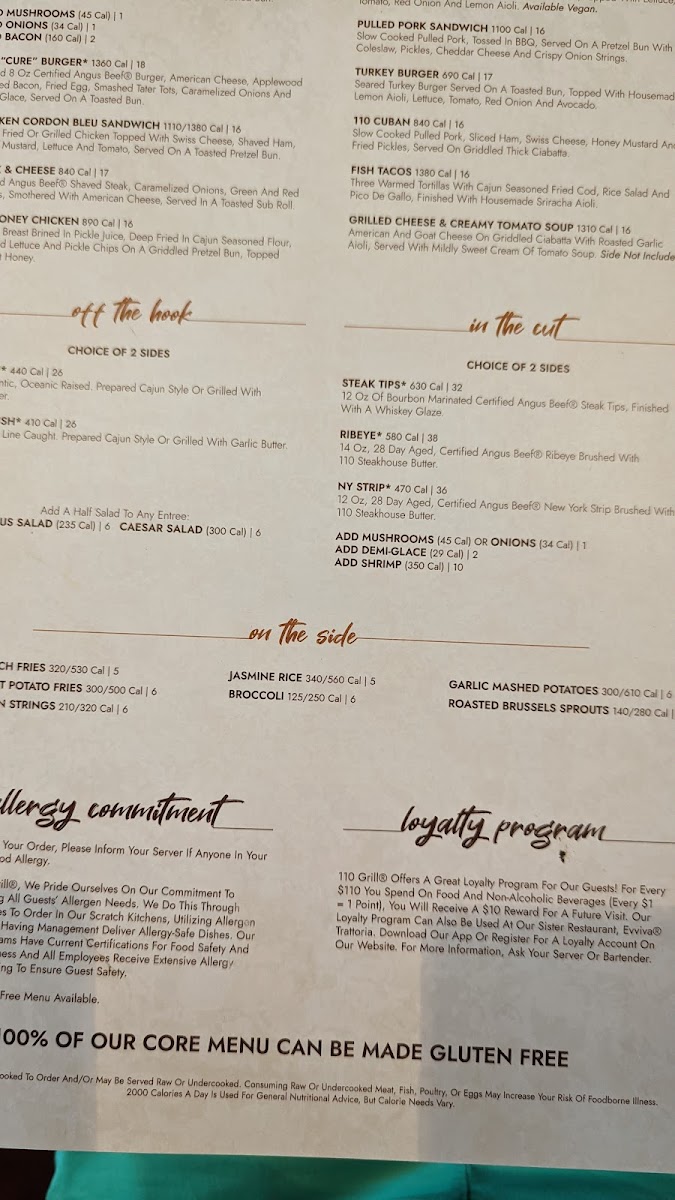 MUSHROOMS (45 Cal) | 1
ONIONS (34 Cal) | 1
BACON (160 Cal) | 2
"CURE" BURGER* 1360 Cal | 18
8 Oz Certified Angus Beef® Burger, American Cheese, Applewood
Bacon, Fried Egg, Smashed Tater Tots, Caramelized Onions And
Glace, Served On A Toasted Bun.
KEN CORDON BLEU SANDWICH 1110/1380 Cal | 16
Fried Or Grilled Chicken Topped With Swiss Cheese, Shaved Ham,
Mustard, Lettuce And Tomato, Served On A Toasted Pretzel Bun.
& CHEESE 840 Cal | 17
d Angus Beef® Shaved Steak, Caramelized Onions, Green And Red
s, Smothered With American Cheese, Served In A Toasted Sub Roll.
ONEY CHICKEN 890 Cal | 16
Breast Brined In Pickle Juice, Deep Fried In Cajun Seasoned Flour,
d Lettuce And Pickle Chips On A Griddled Pretzel Bun, Topped
Honey.
Tomato, Red Onion And Lemon Aioli. Available Vegan.
PULLED PORK SANDWICH 1100 Cal | 16
Slow Cooked Pulled Pork, Tossed In BBQ, Served On A Pretzel Bun With
Coleslaw, Pickles, Cheddar Cheese And Crispy Onion Strings.
TURKEY BURGER 690 Cal | 17
Seared Turkey Burger Served On A Toasted Bun, Topped With Housemad
Lemon Aioli, Lettuce, Tomato, Red Onion And Avocado.
110 CUBAN 840 Cal | 16
Slow Cooked Pulled Pork, Sliced Ham, Swiss Cheese, Honey Mustard An
Fried Pickles, Served On Griddled Thick Ciabatta.
FISH TACOS 1380 Cal | 16
Three Warmed Tortillas With Cajun Seasoned Fried Cod, Rice Salad And
Pico De Gallo, Finished With Housemade Sriracha Aioli.
GRILLED CHEESE & CREAMY TOMATO SOUP 1310 Cal | 16
American And Goat Cheese On Griddled Ciabatta With Roasted Garlic
Aioli, Served With Mildly Sweet Cream Of Tomato Soup. Side Not Include
off the hook
CHOICE OF 2 SIDES
* 440 Cal | 26
ntic, Oceanic Raised. Prepared Cajun Style Or Grilled With
er.
SH* 410 Cal | 26
Line Caught. Prepared Cajun Style Or Grilled With Garlic Butter.
Add A Half Salad To Any Entree:
US SALAD (235 Cal) | 6 CAESAR SALAD (300 Cal) | 6
in the cut
CHOICE OF 2 SIDES
STEAK TIPS* 630 Cal | 32
12 Oz Of Bourbon Marinated Certified Angus Beef® Steak Tips, Finished
With A Whiskey Glaze.
RIBEYE* 580 Cal | 38
14 Oz, 28 Day Aged, Certified Angus Beef® Ribeye Brushed With
110 Steakhouse Butter.
NY STRIP* 470 Cal | 36
12 Oz, 28 Day Aged, Certified Angus Beef® New York Strip Brushed With
110 Steakhouse Butter.
ADD MUSHROOMS (45 Cal) OR ONIONS (34 Cal) | 1
ADD DEMI-GLACE (29 Cal) | 2
ADD SHRIMP (350 Cal) | 10
on the side
CH FRIES 320/530 Cal | 5
T POTATO FRIES 300/500 Cal | 6
N STRINGS 210/320 Cal | 6
JASMINE RICE 340/560 Cal | 5
BROCCOLI 125/250 Cal | 6
GARLIC MASHED POTATOES 300/610 Cal | 6
ROASTED BRUSSELS SPROUTS 140/280 Cal |
allergy commitment
Your Order, Please Inform Your Server If Anyone In Your
od Allergy.
ill®, We Pride Ourselves On Our Commitment To
g All Guests' Allergen Needs. We Do This Through
es To Order In Our Scratch Kitchens, Utilizing Allergen
Having Management Deliver Allergy-Safe Dishes. Our
ams Have Current Certifications For Food Safety And
ness And All Employees Receive Extensive Allergy
ng To Ensure Guest Safety.
Free Menu Available.
loyalty program
110 Grill® Offers A Great Loyalty Program For Our Guests! For Every
$110 You Spend On Food And Non-Alcoholic Beverages (Every $1
= 1 Point), You Will Receive A $10 Reward For A Future Visit. Our
Loyalty Program Can Also Be Used At Our Sister Restaurant, Evviva®
Trattoria. Download Our App Or Register For A Loyalty Account On
Our Website. For More Information, Ask Your Server Or Bartender.
100% OF OUR CORE MENU CAN BE MADE GLUTEN FREE
ooked To Order And/Or May Be Served Raw Or Undercooked. Consuming Raw Or Undercooked Meat, Fish, Poultry, Or Eggs May Increase Your Risk Of Foodborne Illness.
2000 Calories A Day Is Used For General Nutritional Advice, But Calorie Needs Vary.